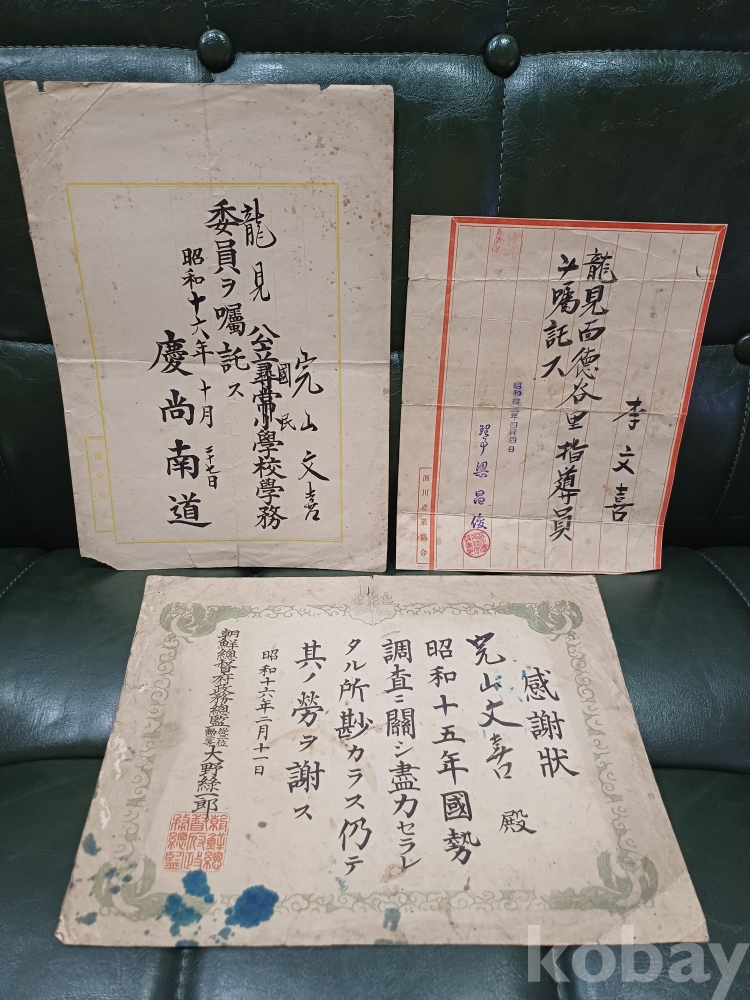 完山文喜
龍見公立尋常小學校學務
國民
委員ヲ囑託ス
昭和十六年十月二十七日
慶尚南道
李文喜
龍見面德谷里指導員
ヲ囑託ス
四月四日
梁昌俊
泗川産業組合
感謝狀
完山文喜殿
昭和十五年國勢
調査ニ關シ盡力セラレ
タル所尠カラス仍テ
其ノ勞ヲ謝ス
昭和十六年二月十一日
朝鮮總督府政務總監大野緑一郎
朝鮮總
督府政
務總監
kobay